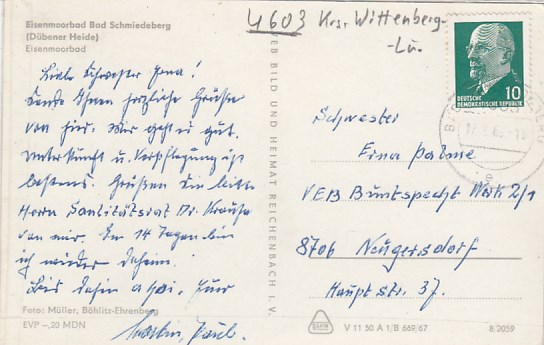 Eisenmoorbad Bad Schmiedeberg
(Dübener Heide)
Eisenmoorbad
4603 Krs. Wittenberg-
-Lu.
DEUTSCHE
DEMOKRATISCHE REPUBLIK
10
Liebe Schwester Erna!
Sende Ihnen herzliche Grüße
von hier. Mir geht es gut.
Unterkunft u. Verpflegung ist
bestens. Grüßen Sie bitte
Herrn Sanitätsrat Dr. Krause
von mir. In 14 Tagen bin
ich wieder daheim.
Bis dahin
Foto: Müller, Böhlitz-Ehrenberg
EVP –,20 MDN
VEB BILD UND HEIMAT REICHENBACH I. V.
Schwester
Erna Palme
VEB Buntspecht Werk 2/1
8706 Neugersdorf
Hauptstr. 37.
V 11 50 A 1/B 669/67
8/2059